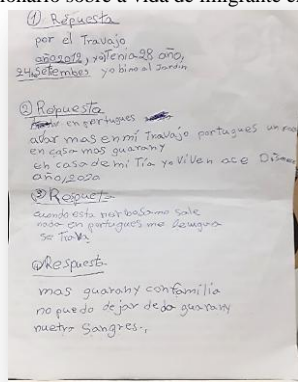 ionário sobre a vida de imigrante e
① Repuesta
por el Travajo
año 2012, yo Tenia 28 año,
24 Setember yo bino al Jardin
② Ropuesta
en portugues
ablar mas en mi Travajo portugues un
en casa mas guarany
en casa de mi Tía yo Viven ace
año, 2020
③ Respuet
cuando esta norbosa no sale
nada en portugues me
se Traba
④ Respuesta
mas guarany con familia
no puedo dejar de guarany
nuetra Sangres.,